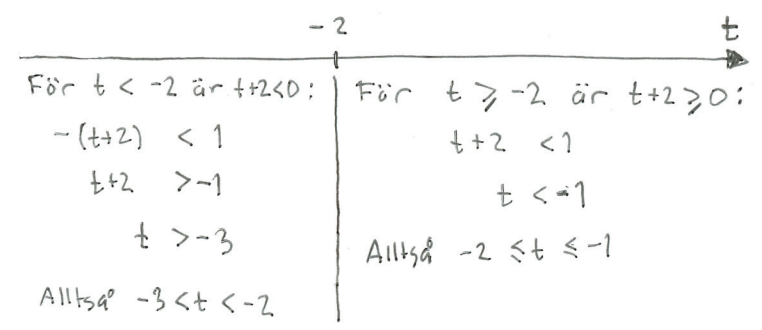 -2 t
För t < -2 är t+2<0:
-(t+2) < 1
t+2 > -1
t > -3
Alltså -3 < t < -2
För t ⩾ -2 är t+2 ⩾ 0:
t+2 < 1
t < -1
Alltså -2 ≤ t ≤ -1